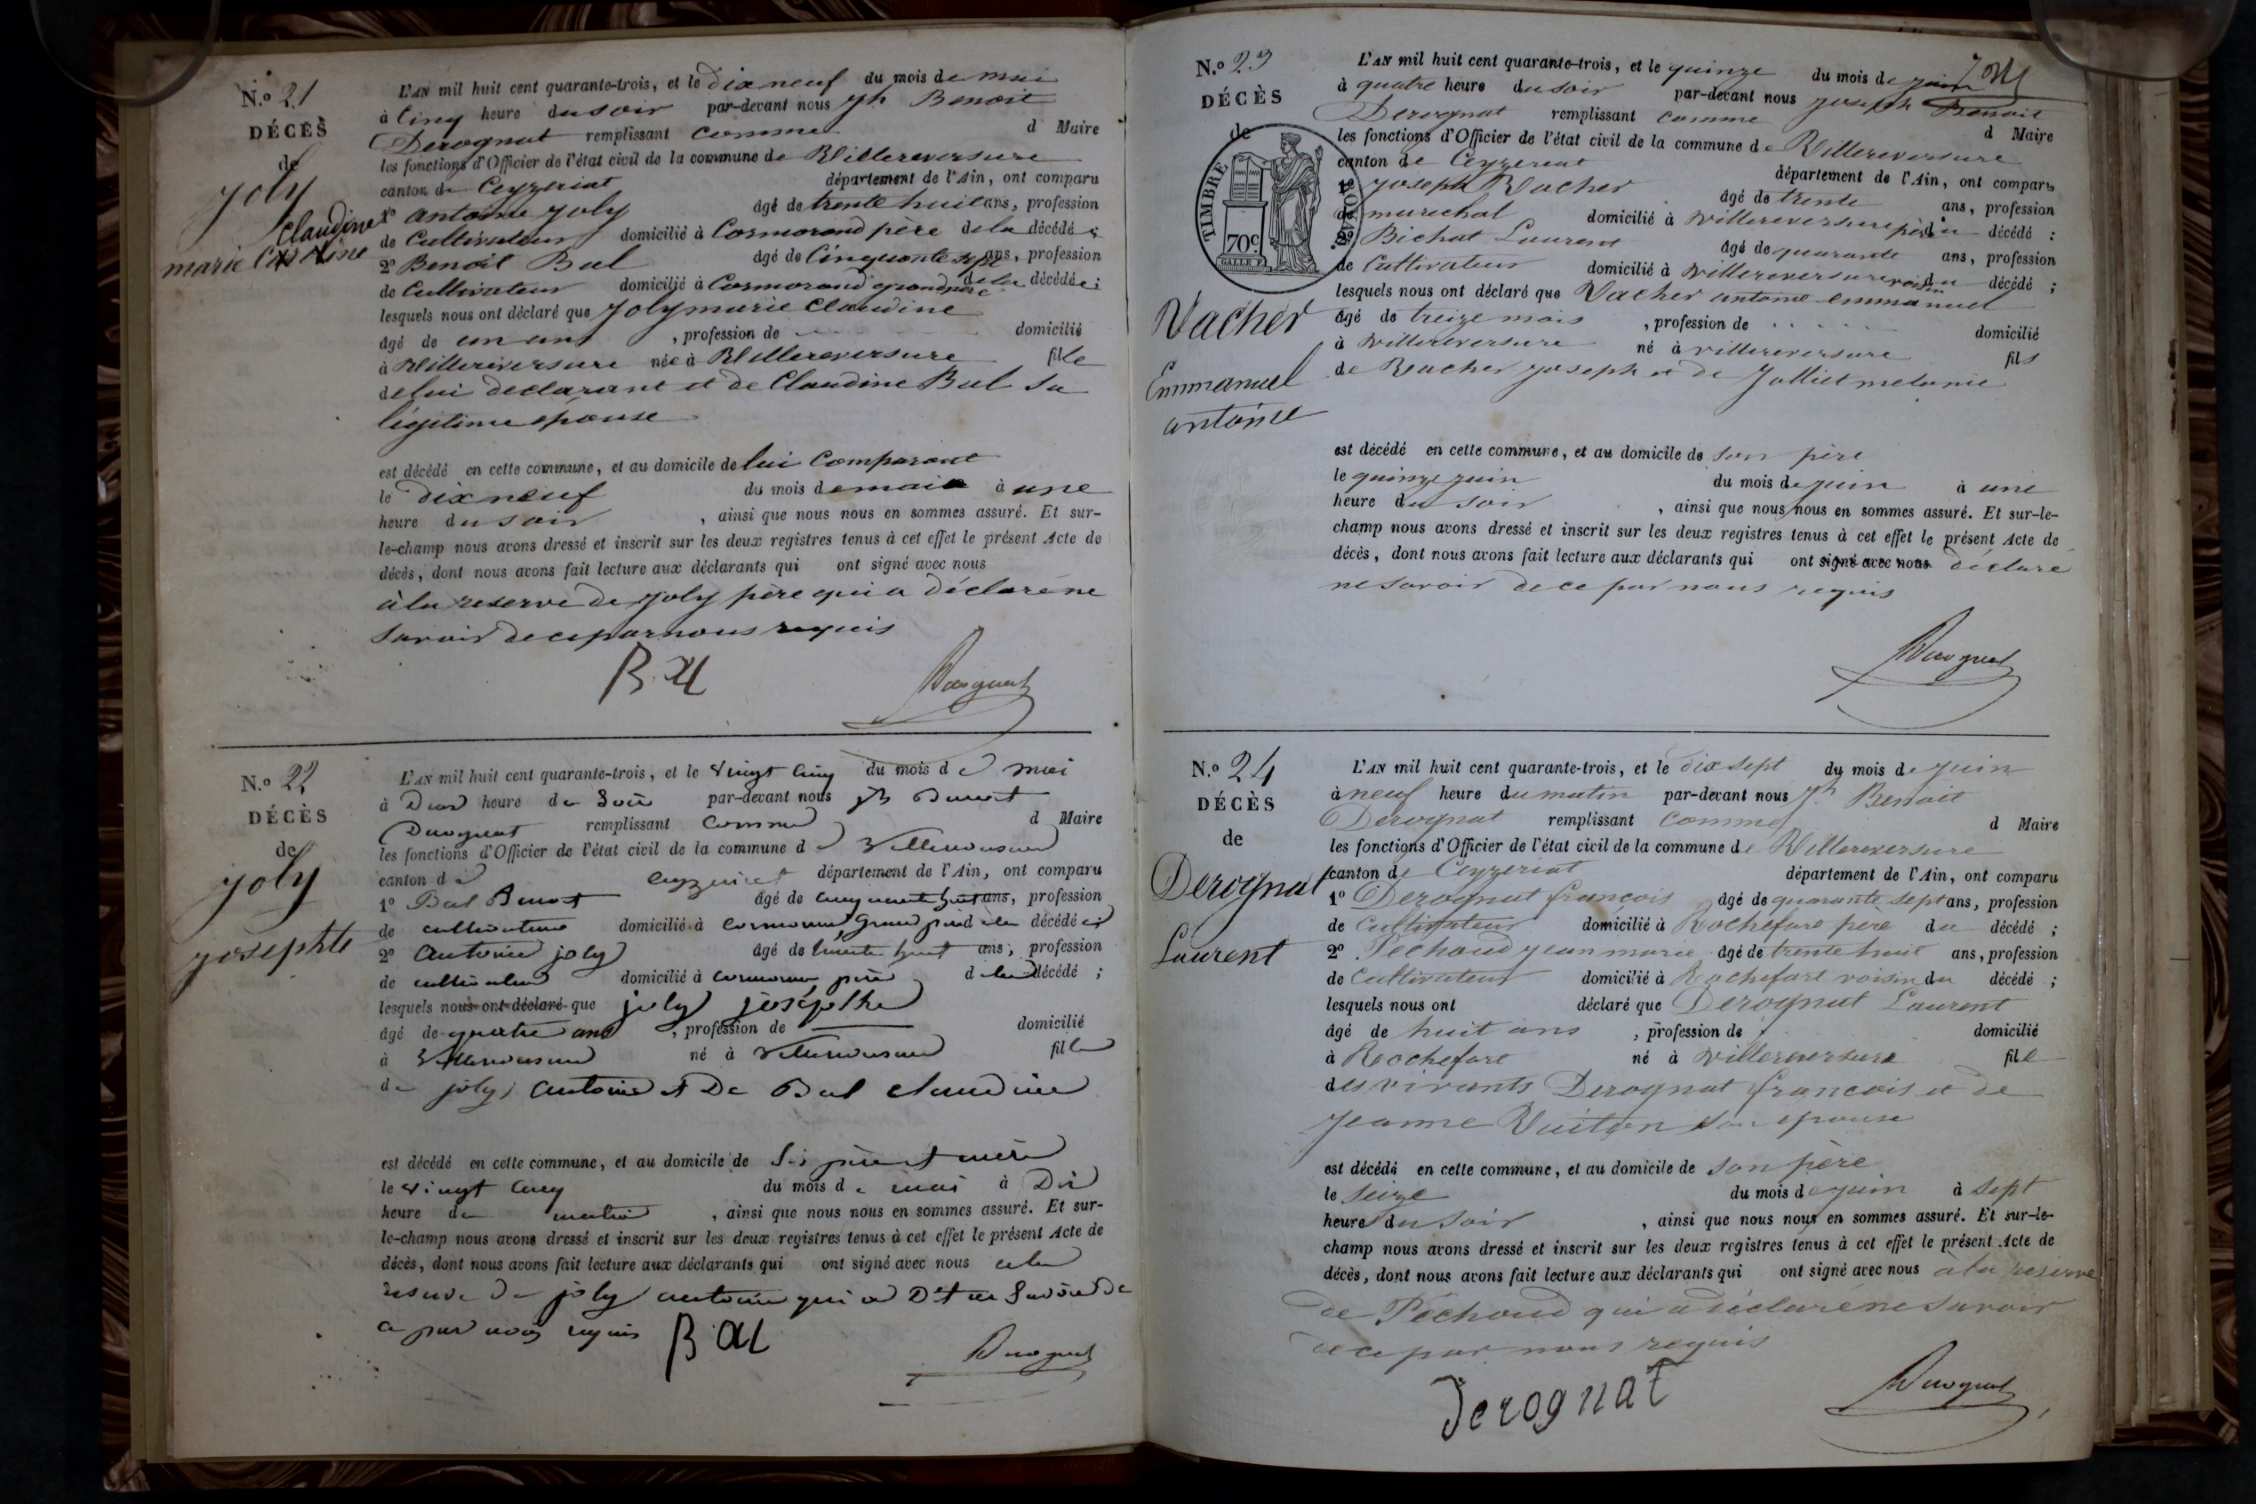 N.º 21
DÉCÈS
de
joly
Claudine
marie
L'AN mil huit cent quarante-trois, et le dix neuf du mois de mai
à Cinq heure du soir par-devant nous jh Benoit
Derognat remplissant comme d Maire
les fonctions d'Officier de l'état civil de la commune de Villereversure
canton de Ceyzeriat département de l'Ain, ont comparu
1º antoine joly âgé de trente huit ans, profession
de Cultivateur domicilié à Cormorand père de la décédé ;
2º Benoit Bal âgé de Cinquante sept ans, profession
de Cultivateur domicilié à Cormorand grandpère de la décédée ;
lesquels nous ont déclaré que Joly marie Claudine
âgé de un an , profession de domicilié
à Villereversure née à Villereversure fille
de lui declarant et de Claudine Bal sa
légitime épouse
est décédé en cette commune, et au domicile de lui Comparant
le dix neuf du mois de mai à une
heure du soir , ainsi que nous nous en sommes assuré. Et sur-
le-champ nous avons dressé et inscrit sur les deux registres tenus à cet effet le présent Acte de
décès, dont nous avons fait lecture aux déclarants qui ont signé avec nous
à la reserve de joly père qui a déclaré ne
savoir de ce par nous requis
Bal Derognat
N.º 22
DÉCÈS
de
joly
josephte
L'AN mil huit cent quarante-trois, et le vingt cinq du mois de mai
à Deux heure de Soir par-devant nous jh Benoit
Derognat remplissant comme d Maire
les fonctions d'Officier de l'état civil de la commune de Villereversure
canton de ceyzeriat département de l'Ain, ont comparu
1º Bal Benoit âgé de cinquante huit ans, profession
de cultivateur domicilié à cormorand grand père de la décédé
2º Antoine joly âgé de trente huit ans, profession
de cultivateur domicilié à cormoran père de la décédé ;
lesquels nous ont déclaré que joly josephte
âgé de quatre ans , profession de domicilié
à Villereversure né à Villereversure fille
de joly antoine et De Bal claudine
est décédé en cette commune, et au domicile de Ses père et mère
le vingt cinq du mois de mai à Dix
heure du matin , ainsi que nous nous en sommes assuré. Et sur-
le-champ nous avons dressé et inscrit sur les deux registres tenus à cet effet le présent Acte de
décès, dont nous avons fait lecture aux déclarants qui ont signé avec nous a la
reserve de joly antoine qui a Dit ne Savoir de
ce par nous requis Bal Derognat
N.º 23
DÉCÈS
de
TIMBRE ROYAL
70c.
GALLE F.
Vacher
Emmanuel
antoine
L'AN mil huit cent quarante-trois, et le quinze du mois de juin
à quatre heure du soir par-devant nous joseph Benoit
Derognat remplissant comme d Maire
les fonctions d'Officier de l'état civil de la commune de Villereversure
canton de Ceyzeriat département de l'Ain, ont comparu
1º joseph Vacher âgé de trente ans, profession
de marechal domicilié à villereversure père du décédé ;
2º Bichat Laurent âgé de quarante ans, profession
de Cultivateur domicilié à villereversure voisin du décédé ;
lesquels nous ont déclaré que Vacher antoine emmanuel
âgé de treize mois , profession de domicilié
à villereversure né à villereversure fils
de Vacher joseph et de Jolliet melanie
est décédé en cette commune, et au domicile de son père
le quinze juin du mois de juin à une
heure du soir , ainsi que nous nous en sommes assuré. Et sur-le-
champ nous avons dressé et inscrit sur les deux registres tenus à cet effet le présent Acte de
décès, dont nous avons fait lecture aux déclarants qui ont signé avec nous déclaré
ne savoir de ce par nous requis
Derognat
N.º 24
DÉCÈS
de
Derognat
Laurent
L'AN mil huit cent quarante-trois, et le dix sept du mois de juin
à neuf heure du matin par-devant nous jh Benoit
Derognat remplissant comme d Maire
les fonctions d'Officier de l'état civil de la commune de Villereversure
canton de Ceyzeriat département de l'Ain, ont comparu
1º Derognat françois âgé de quarante sept ans, profession
de Cultivateur domicilié à Rochefort père du décédé ;
2º Péchoud jean marie âgé de trente huit ans, profession
de Cultivateur domicilié à Rochefort voisin du décédé ;
lesquels nous ont déclaré que Derognat Laurent
âgé de huit ans , profession de domicilié
à Rochefort né à villereversure fil
des vivants Derognat françois et de
jeanne Vuiton son epouse
est décédé en cette commune, et au domicile de son père
le seize du mois de juin à sept
heure du soir , ainsi que nous nous en sommes assuré. Et sur-le-
champ nous avons dressé et inscrit sur les deux registres tenus à cet effet le présent Acte de
décès, dont nous avons fait lecture aux déclarants qui ont signé avec nous à la reserve
de Péchoud qui a déclaré ne savoir
de ce par nous requis
Derognat Derognat